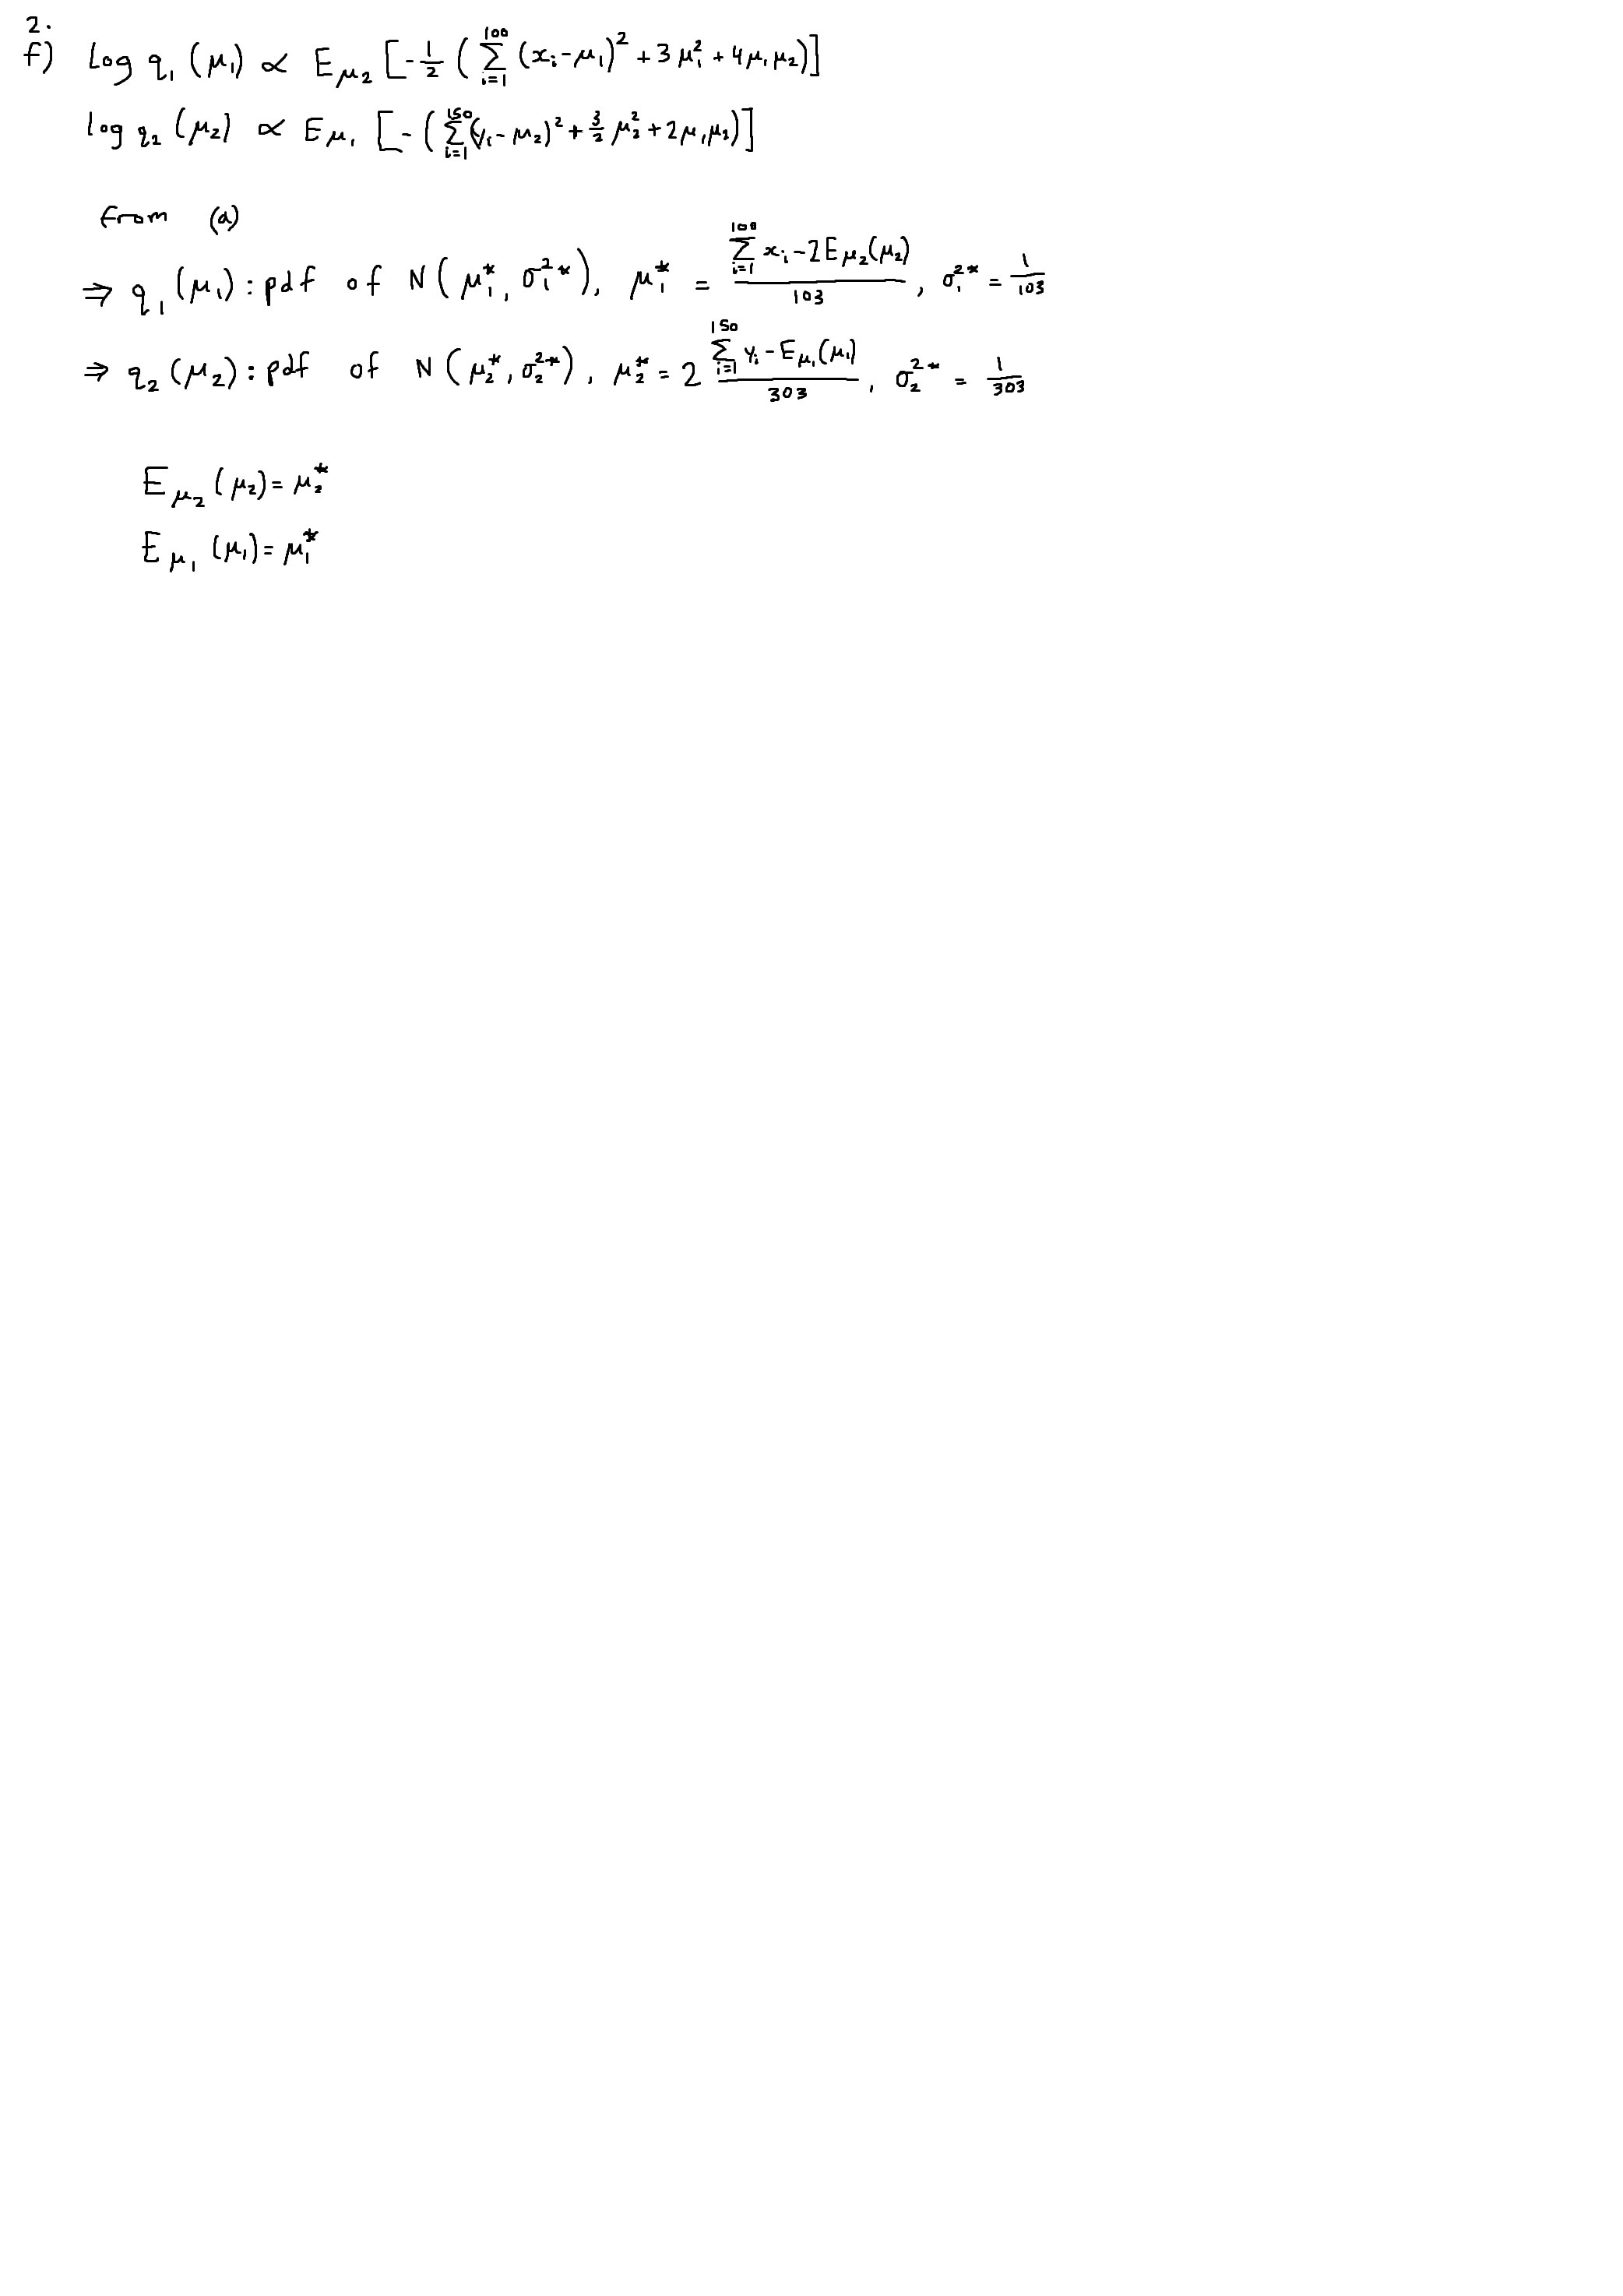 2.
f) Log q₁(μ₁) ∝ E_μ₂ [-1/2 (∑_{i=1}^{100} (xᵢ-μ₁)² + 3μ₁² + 4μ₁μ₂)]
log q₂(μ₂) ∝ E_μ₁ [-(∑_{i=1}^{150} (yᵢ-μ₂)² + 3/2 μ₂² + 2μ₁μ₂)]
From (a)
⇒ q₁(μ₁): pdf of N(μ₁*, σ₁²*), μ₁* = (∑_{i=1}^{100} xᵢ - 2E_μ₂(μ₂))/103, σ₁²* = 1/103
⇒ q₂(μ₂): pdf of N(μ₂*, σ₂²*), μ₂* = 2 (∑_{i=1}^{150} yᵢ - E_μ₁(μ₁))/303, σ₂²* = 1/303
E_μ₂(μ₂) = μ₂*
E_μ₁(μ₁) = μ₁*